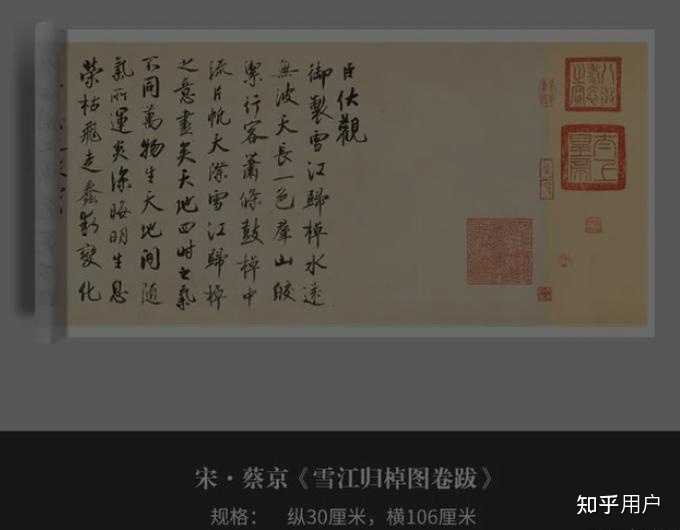 八徵耄念之寶
太上皇帝
臣伏觀
御製雪江歸棹水遠
無波天長一色羣山皎
潔行客蕭條鼓棹中
流片帆天際雪江歸棹
之意盡矣天地四時之氣
不同萬物生天地間隨
氣所運炎涼晦明生息
榮枯飛走蠢動變化
宋·蔡京《雪江归棹图卷跋》
规格： 纵30厘米，横106厘米
知乎用户